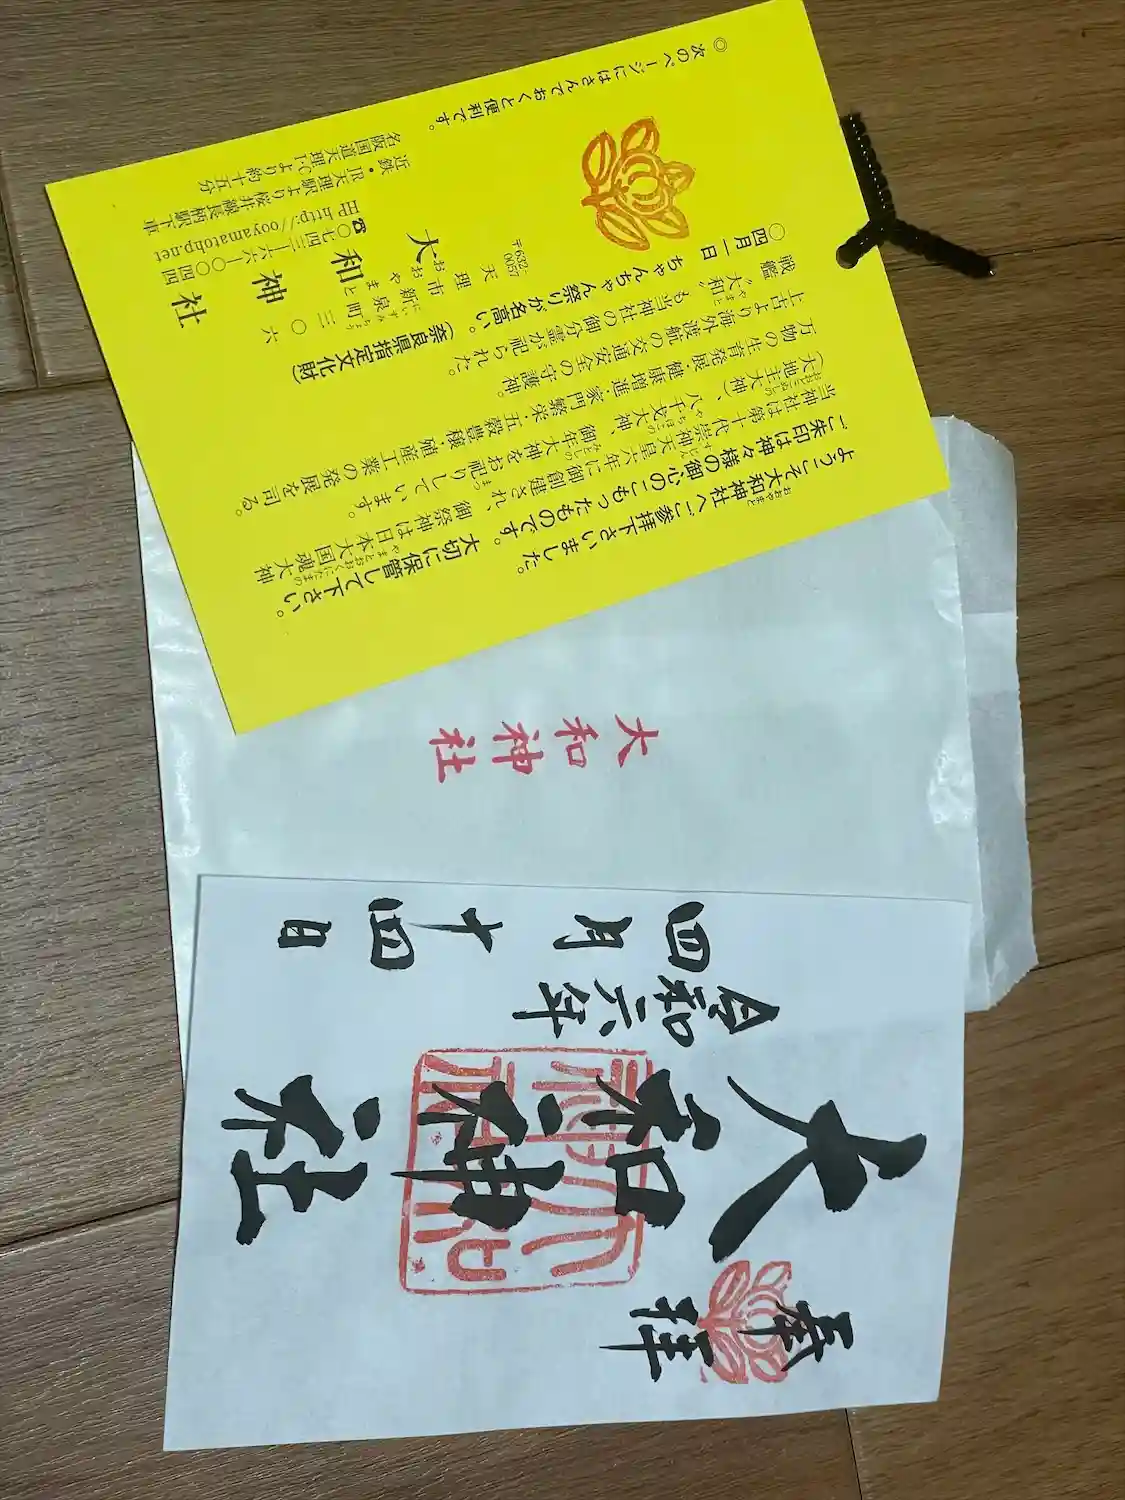 ようこそ大和神社へご参拝下さいました。
ご朱印は神々様の御心のこもったものです。大切に保管して下さい。
当神社は第十代崇神天皇六年に御創建され、御祭神は日本大国魂大神
(大地主大神)、八千戈大神、御年大神をお祀りしています。
万物の生育発展・健康増進・家門繁栄・五穀豊穣・殖産工業の発展を司る。
上古より海外渡航の交通安全の守護神。
戦艦“大和”も当神社の御分霊が祀られた。
◎四月一日 ちゃんちゃん祭りが名高い。(奈良県指定文化財)
〒632-0057
天理市新泉町三〇六
大和神社
☎〇七四三-六六-〇〇四四
HP http://ooyamatohp.net
近鉄・JR天理駅より桜井線長柄駅下車
名阪国道天理I・Cより約十五分
◎次のページにはさんでおくと便利です。
大和神社
奉拝
大和神社
令和六年
四月十四日